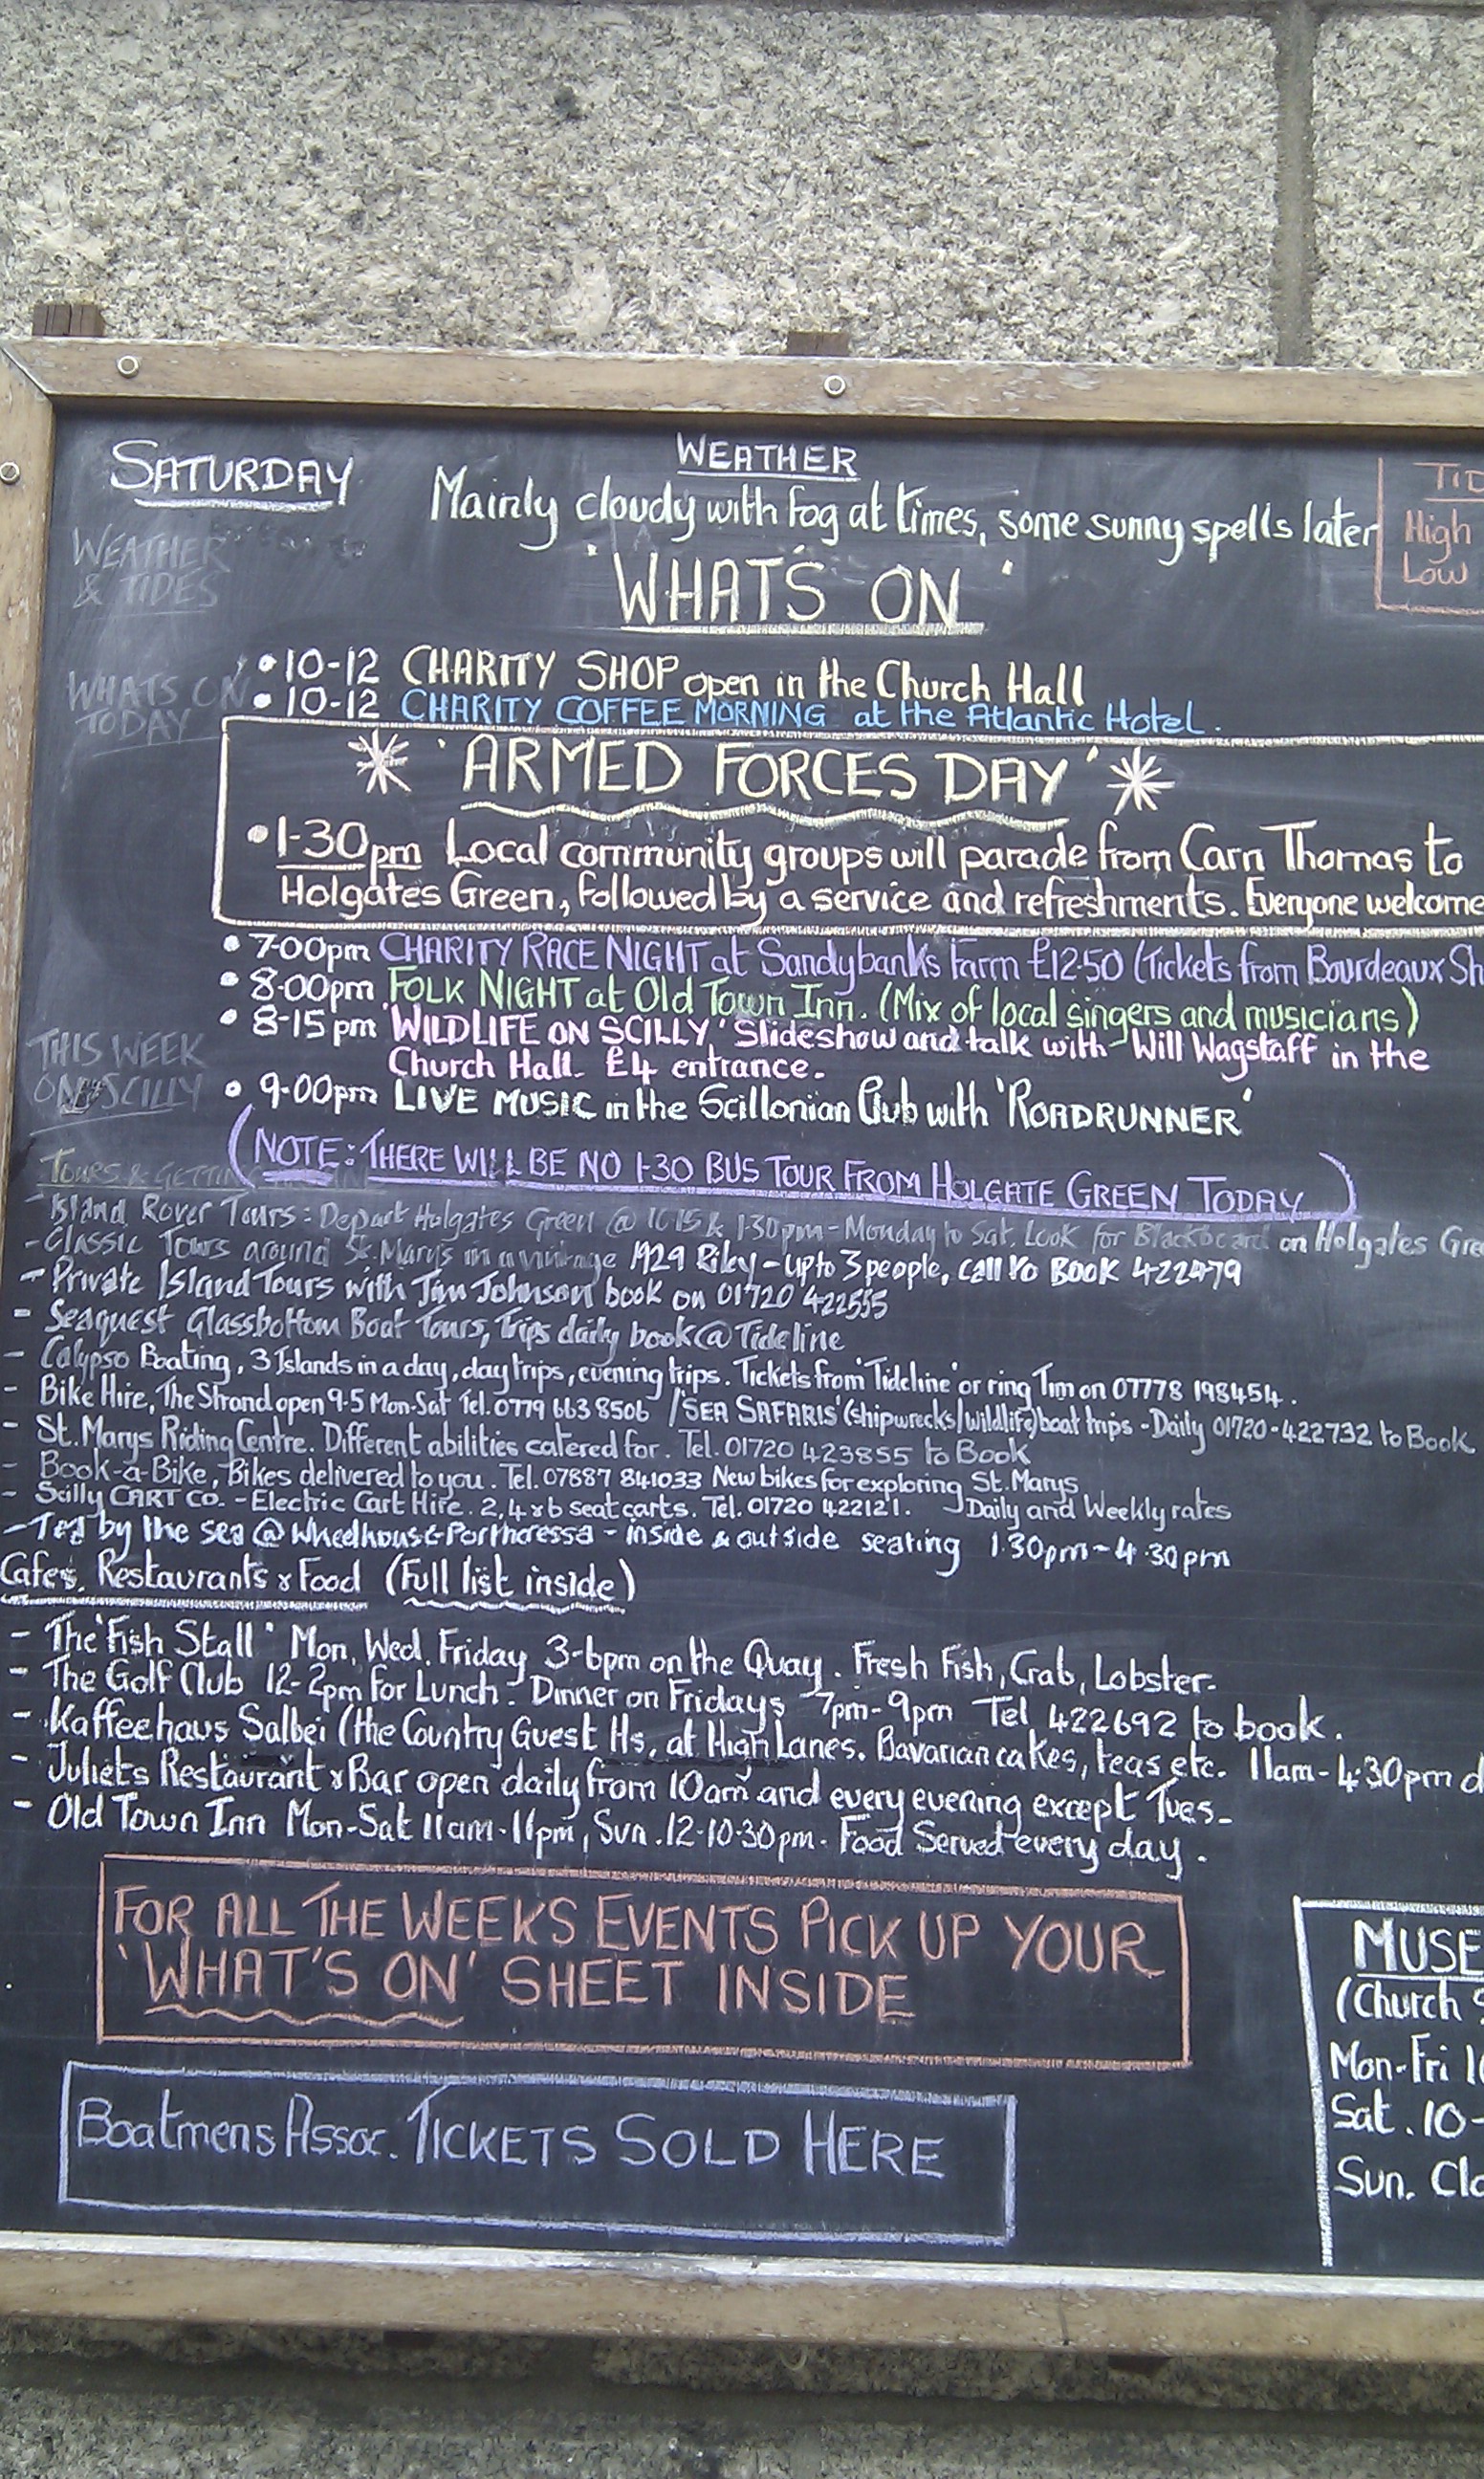 SATURDAY
WEATHER
Mainly cloudy with fog at times, some sunny spells later
TID
High
Low
WEATHER
& TIDES
'WHAT'S ON'
WHATS ON
TODAY
• 10-12 CHARITY SHOP open in the Church Hall
• 10-12 CHARITY COFFEE MORNING at the Atlantic Hotel.
'ARMED FORCES DAY'
• 1-30pm Local community groups will parade from Carn Thomas to
Holgates Green, followed by a service and refreshments. Everyone welcome
• 7-00pm CHARITY RACE NIGHT at Sandybanks Farm £12-50 (Tickets from Bourdeaux Sh
• 8-00pm FOLK NIGHT at Old Town Inn. (Mix of local singers and musicians)
• 8-15pm 'WILDLIFE ON SCILLY' Slideshow and talk with Will Wagstaff in the
Church Hall. £4 entrance.
THIS WEEK
ON SCILLY
• 9-00pm LIVE MUSIC in the Scillonian Club with 'ROADRUNNER'
(NOTE: THERE WILL BE NO 1-30 BUS TOUR FROM HOLGATE GREEN TODAY)
TOURS & GETTING
- Island Rover Tours: Depart Holgates Green @ 1015 & 1.30pm - Monday to Sat. Look for Blackboard on Holgates Gre
- Classic Tours around St. Mary's in a vintage 1929 Riley - up to 3 people, call to BOOK 422479
- Private Island Tours with Tim Johnson book on 01720 422555
- Seaquest Glassbottom Boat Tours, Trips daily book @ Tideline
- Calypso Boating, 3 Islands in a day, day trips, evening trips. Tickets from 'Tideline' or ring Tim on 07778 198454.
- Bike Hire, The Strand open 9-5 Mon-Sat Tel. 0779 663 8506 / 'SEA SAFARIS' (shipwrecks/wildlife) boat trips - Daily 01720-422732 to Book
- St. Marys Riding Centre. Different abilities catered for. Tel. 01720 423855 to Book
- Book-a-Bike, Bikes delivered to you. Tel. 07887 841033 New bikes for exploring St. Marys
- Scilly CART Co. - Electric Cart Hire. 2, 4 & 6 seat carts. Tel. 01720 422121. Daily and Weekly rates
- Tea by the sea @ Wheelhouse-Porthcressa - inside & outside seating 1.30pm - 4.30pm
Cafes, Restaurants & Food (Full list inside)
- The 'Fish Stall' Mon, Wed, Friday 3-6pm on the Quay. Fresh Fish, Crab, Lobster.
- The Golf Club 12-2pm for Lunch. Dinner on Fridays 7pm-9pm Tel 422692 to book.
- Kaffeehaus Salbei (the Country Guest Hs, at High Lanes. Bavarian cakes, teas etc. 11am-4:30pm d
- Juliets Restaurant & Bar open daily from 10am and every evening except Tues.
- Old Town Inn Mon-Sat 11am-11pm, Sun. 12-10-30pm. Food Served every day.
FOR ALL THE WEEKS EVENTS PICK UP YOUR
'WHAT'S ON' SHEET INSIDE
Boatmens Assoc. TICKETS SOLD HERE
MUSE
(Church S
Mon-Fri 10
Sat. 10-
Sun. Clo